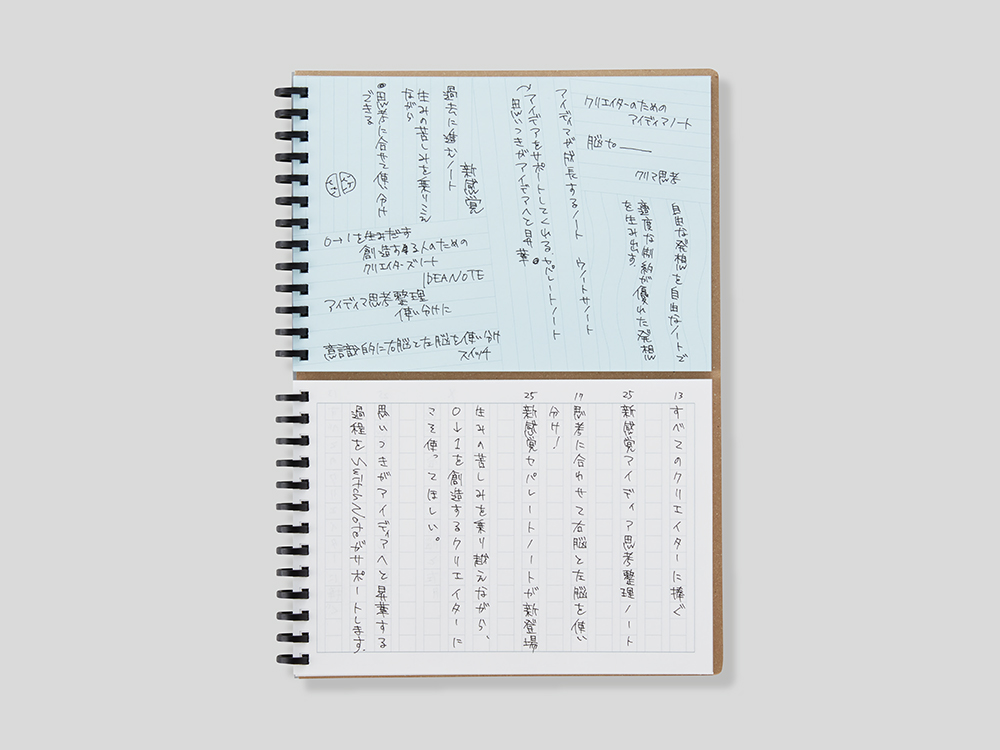 クリエイターのための
アイディアノート
脳to
クリア思考
自由な発想を自由なノートで
適度な制約が優れた発想
を生み出す
アイディアが成長するノート
ウノートサノート
〜アイデアをサポートしてくれるセパレートノート
思いつきがアイデアへと昇華。
新感覚
過去に進むノート
生みの苦しみを乗りこえ
ながら
●思考に合せて使い分け
できる
0→1を生みだす
創造する人のための
クリエイターズノート
IDEANOTE
アイディア思考整理
使い分けに
意識的に右脳と左脳を使い分け
スイッチ
13
すべてのクリエイターに捧ぐ
25
新感覚アイディア思考整理ノート
17
思考に合わせて右脳と左脳を使い
分け!
25
新感覚セパレートノートが新登場
生みの苦しみを乗り越えながら、
0→1を創造するクリエイターに
こそ使ってほしい。
思いつきがアイディアへと昇華する
過程をSwitch Noteがサポートします。